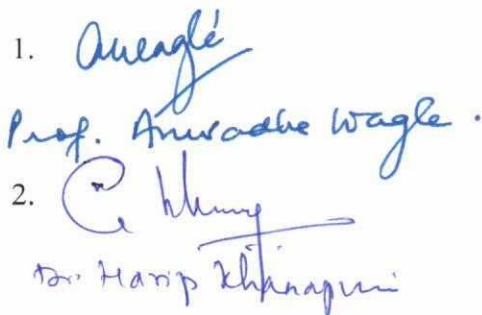 1. AWagle
Prof. Anuradha Wagle.
2.
Dr. Harip Khanapuri